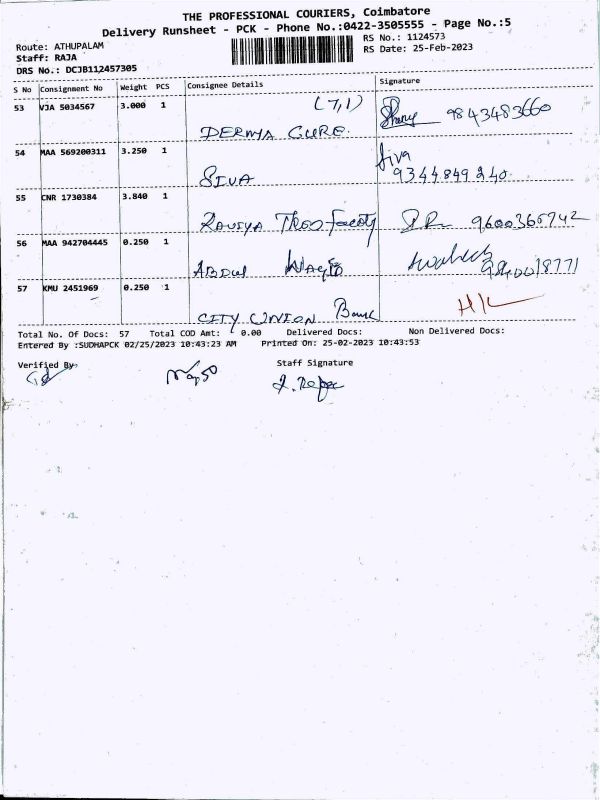 THE PROFESSIONAL COURIERS, Coimbatore
Delivery Runsheet - PCK - Phone No.:0422-3505555 - Page No.:5
Route: ATHUPALAM
RS No.: 1124573
Staff: RAJA
RS Date: 25-Feb-2023
DRS No.: DCJB112457305
S No Consignment No Weight PCS Consignee Details Signature
53 VJA 5034567 3.000 1 (7,1) 9843483660
DERMA CURE.
54 MAA 569200311 3.250 1 Siva
SIVA 9344849240
55 CNR 1730384 3.840 1
9600365742
56 MAA 942704445 0.250 1
ABDUL
57 KMU 2451969 0.250 1
CITY UNION Bank
Total No. Of Docs: 57 Total COD Amt: 0.00 Delivered Docs: Non Delivered Docs:
Entered By :SUDHAPCK 02/25/2023 10:43:23 AM Printed On: 25-02-2023 10:43:53
Verified By: Staff Signature